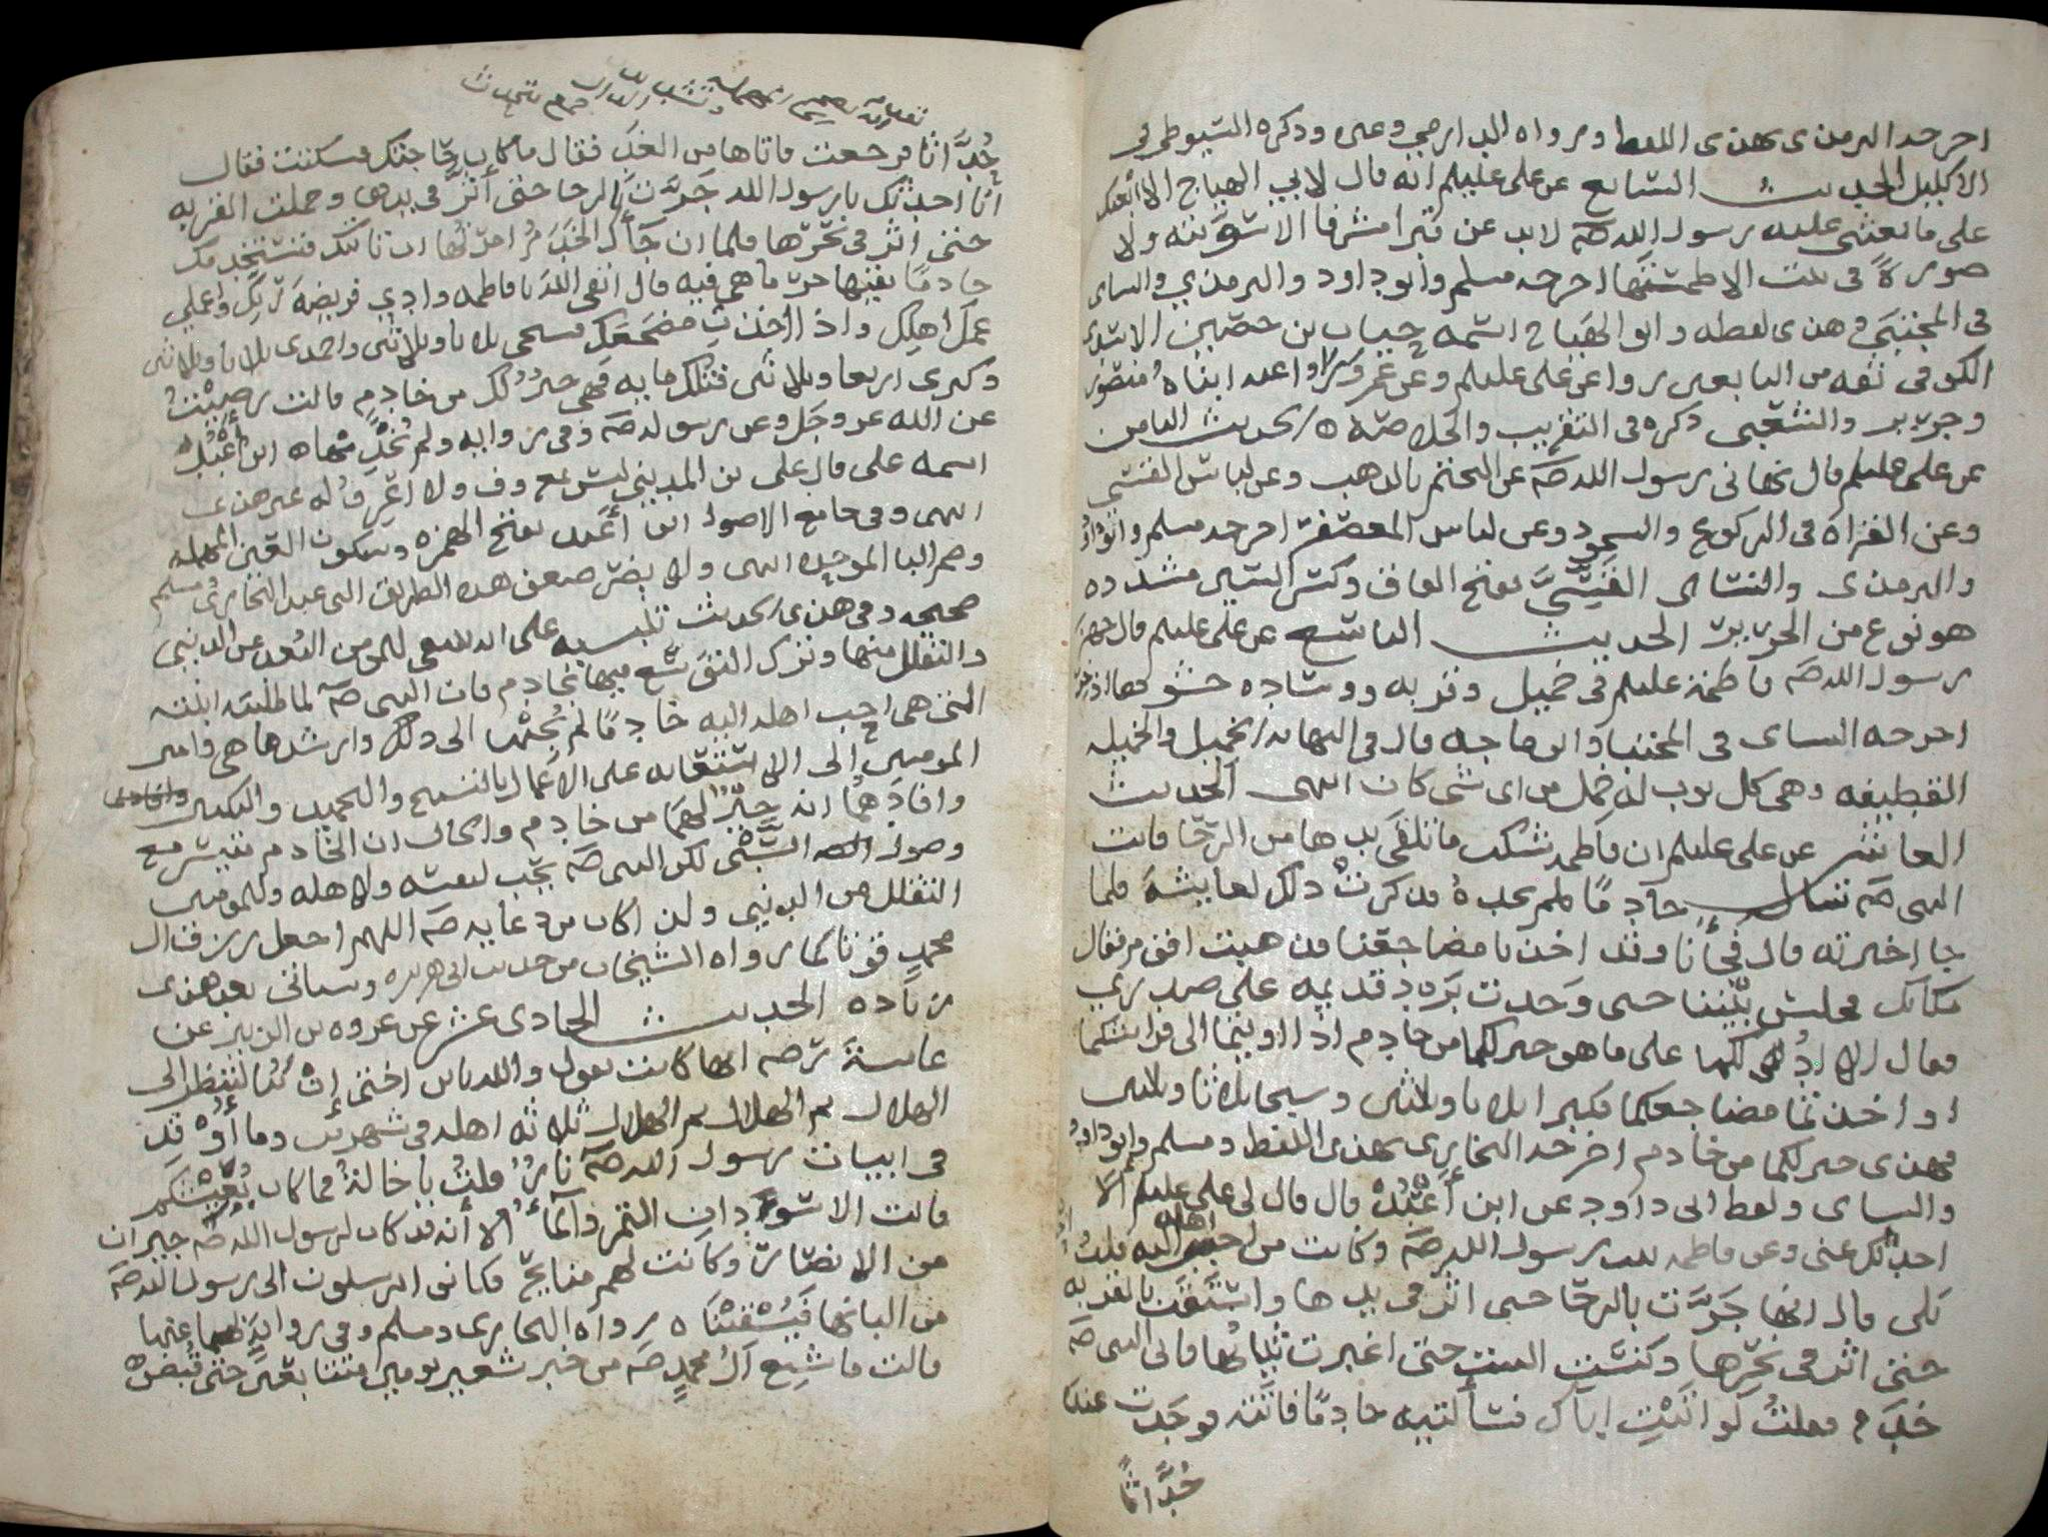 اخرجه الترمذى بهذى اللفظ ورواه الدارمي وغيره وذكره السيوطي في
الاكليل الحديث السابع عن على عليلم انه قال لابي الهياج الا ابعثك
على ما بعثنى عليه رسول الله صم لا تدعن قبرا مشرفا الا سويته ولا
صورة فى بيت الا طمستها اخرجه مسلم وابو داود والترمذي والنساى
فى المجتبى وهذى لفظه وابو الهياج اسمه حيان بن حصين الاسدى
الكوفى ثقه من التابعين روا عن على عليلم وعن عمر وعنه ابناه منصور
وجرير والشعبى ذكره فى التقريب والخلاصة ه الحديث الثامن
عن على عليلم قال نهانى رسول الله صم عن التختم بالذهب وعن لباس القسي
وعن القراة فى الركوع والسجود وعن لباس المعصفر اخرجه مسلم وابوداود
والترمذى والنساى القَسِّيَّ بفتح القاف وكسر السين مشدده
هو نوع من الحرير الحديث التاسع عن على عليلم قال جهز
رسول الله صم فاطمة عليلم فى خميل وقربه ووساده حشوها اذخر
اخرجه النساى فى المجتبا وابن ماجه قال فى النهايه الخميل والخميله
القطيفه وهى كل ثوب له خمل من اى شى كان انتهى الحديث
العاشر عن على عليلم ان فاطمه شكت ما تلقى يدها من الرحا فاتت
النبى صم تسأل خادمًا فلم تجده فذكرت ذلك لعايشة فلما
جا اخبرته قال فجأنا وقد اخذنا مضاجعنا فذهبت اقوم فقال
مكانك فجلس بيننا حتى وجدت برد قدميه على صدرى
فقال الا ادُلكما على ما هو خير لكما من خادم اذا اويتما الى فراشكما
او اخذتما مضاجعكما فكبرا ثلاثا وثلثين وسبحا ثلاثا وثلثين
فهذى خير لكما من خادم اخرجه البخارى بهذى اللفظ ومسلم وابوداود
والنساى ولفظ ابى داود عن ابن أعبُد قال قال لى على عليلم الا
احدثك عنى وعن فاطمه بنت رسول الله صم وكانت من احب اهله اليه قلت
بلى قال انها جَرَّت بالرحا حتى اثر فى يدها واستقت بالقربه
حتى اثر فى نحرها وكنست البيت حتى اغبرت ثيابها فاتى النبى صم
خدم فقلتُ لو اتيتِ اباك فسألتيه خادمًا فاتته فوجدت عنده
حُدَّاثًا
حُدَّاثا فرجعت فاتاها من الغد فقال ما كان حاجتك فسكتت فقال
انا احدثك يا رسول الله جرَّت بالرحا حتى أثر فى يدها وحملت القربه
حتى اثر فى نحرها فلما ان جآك الخدم امرتها ان تاتيك فتستخدمك
خادمًا يقيها حر ما هى فيه قال اتقى الله يا فاطمه وادي فريضة ربك واعملي
عمل اهلك واذا اخذتِ مضجعك فسبحى ثلاثا وثلاثين واحمدى ثلاثا وثلاثين
وكبرى اربعا وثلاثين فتلك مايه فهى خيرُ لك من خادم قالت رضيتُ
عن الله عز وجل وعن رسوله صم وفى روايه ولم يُخْدِمْهاه ابن أعبُد
اسمه على قال على بن المدينى ليس بمعروف ولا اعرف له غير هذى
انتهى وفى جامع الاصول ابن أعبد بفتح الهمزه وسكون العين المهمله
وضم البا الموحده انتهى ولا يضر ضعف هذه الطريق التى عند البخارى ومسلم
صحيحه وفى هذى الحديث تنبيه على انه ينبغى للمومن البُعد عن الدنيى
والتقلل منها وترك التوسع فيها بخادم فان النبى صم لما طلبته ابنته
التى هى احب اهله اليه خادمًا لم يُجبها الى ذلك وارشدها هى وامير
المومنين إلى الاستعانه على الاعمال بالتسبيح والتحميد والتكبير
وافادهُما انه خيرٌ لهما من خادم والحال ان الخادم متيسر مع
وصول السَّبْى لكن النبى صم يحب لنفسه ولاهله وللمومنين
التقلل من الدنيى ولذا كان من دعايه صم اللهم اجعل رزق ال
محمدٍ قوتا كما رواه الشيخان من حديث ابى هريره وسياتى بعد هذى
زياده الحديث الحادى عشر عن عروه بن الزبير عن
عايشة رضه انها كانت تقول والله يابن اختى إن كنا لننظر الى
الهلال ثم الهلال ثم الهلال ثلاثه اهله فى شهرين وما أُوقِد
فى ابيات رسول الله صم نارٌ قلتُ يا خالة فما كان يُعَيِّشكم
قالت الاسودانِ التمر والمأ الا أنه قد كان لرسول الله صم جيران
من الانصار وكانت لهم منايح فكانوا يرسلون الى رسول الله صم
من البانها فيُسْقِينَا ه رواه البخارى ومسلم وفى روايةٍ لهما عنها
قالت ما شبع آل محمدٍ صم من خبز شعير يومين متتابعين حتى قُبض